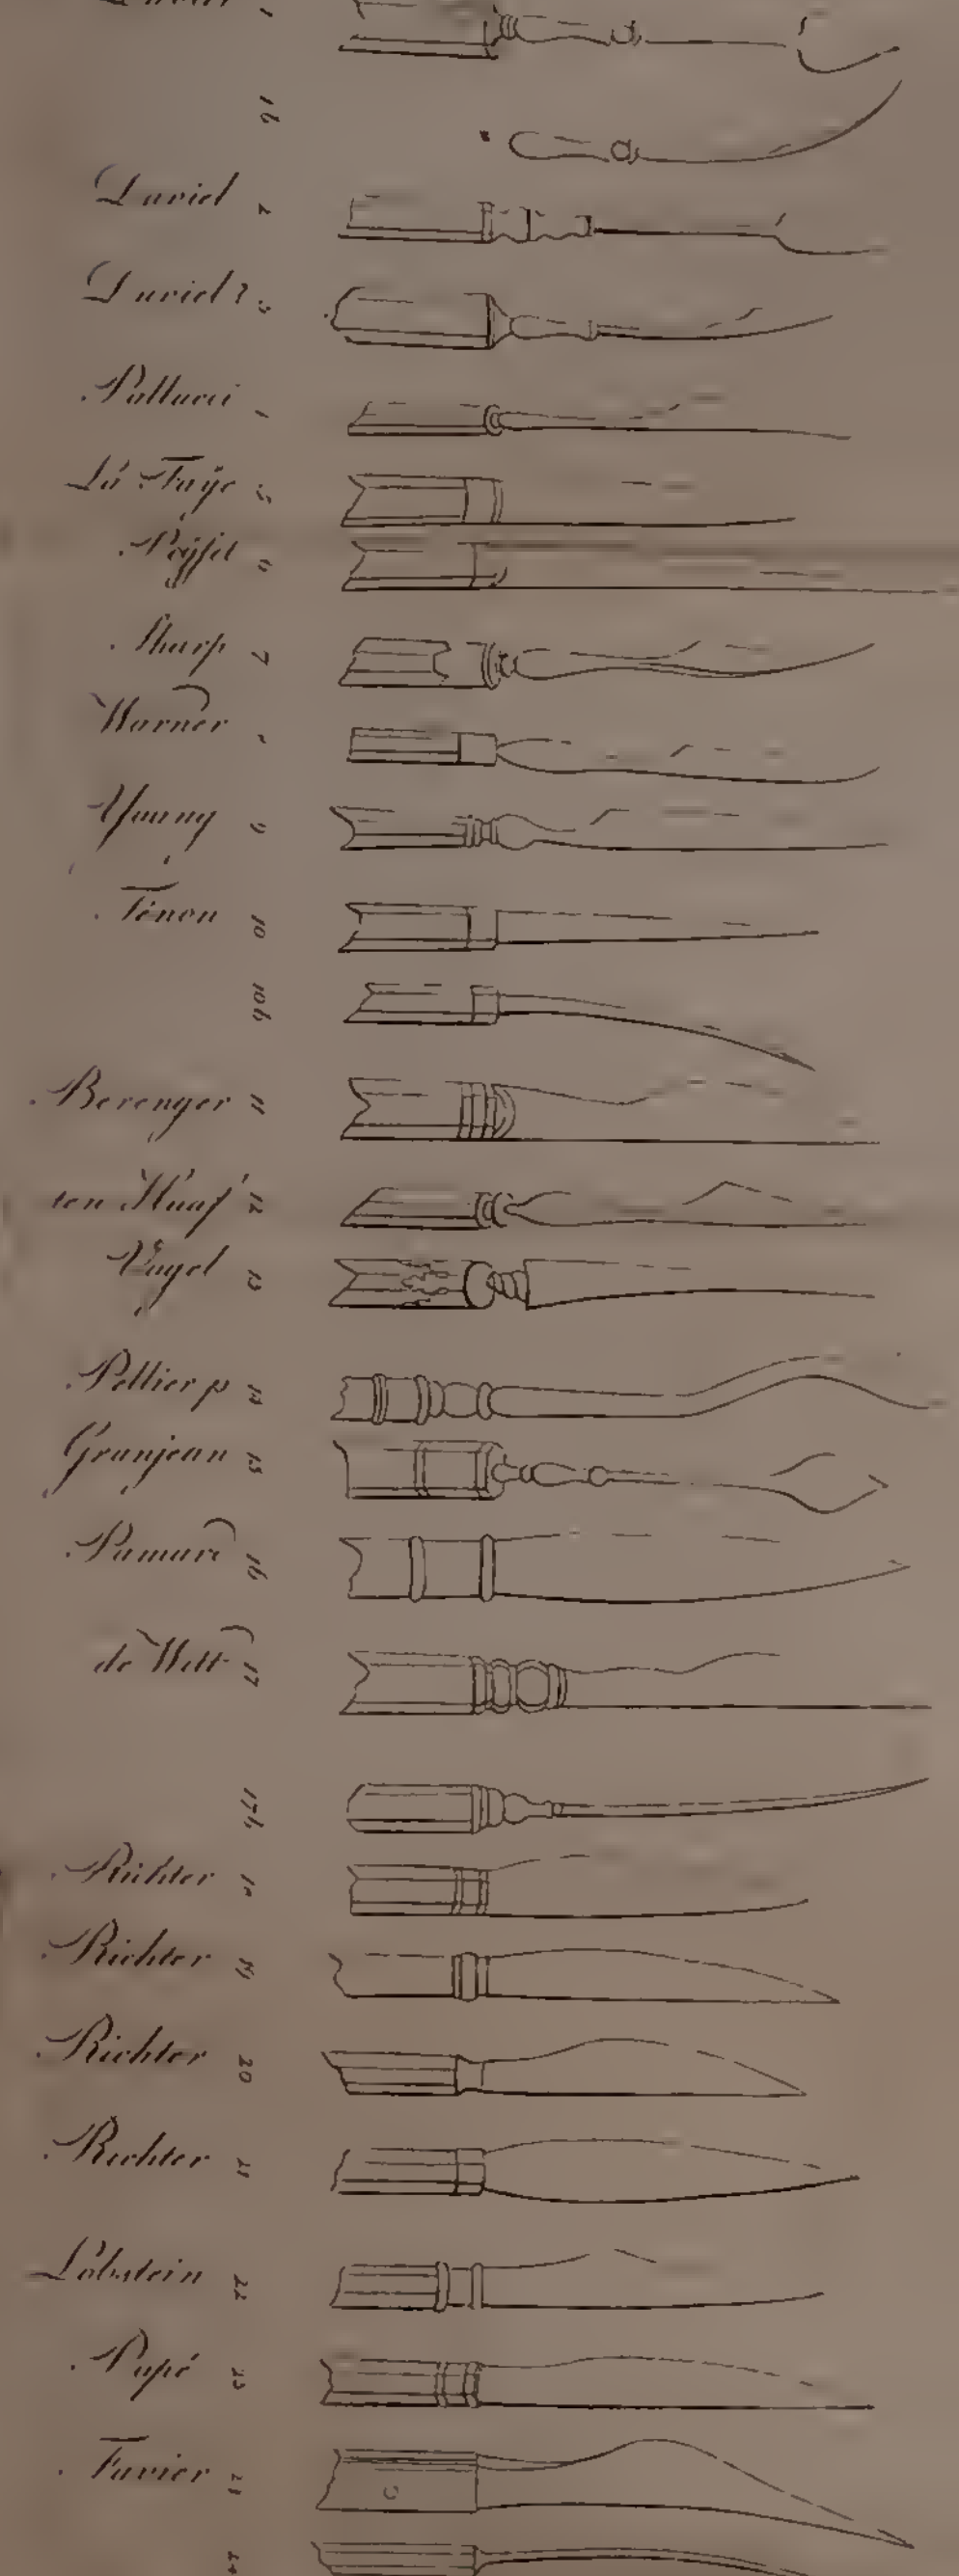 1b
Daviel 2
Daviel? 3
Pallucci
La Faÿe 5
6
Sharp 7
Warner
Young 9
Tenon 10
10b
Berenger 11
ten Haaf 12
Vogel 13
Pellier p 14
Granjean 15
Pamard 16
de Witt 17
17b
Richter
Richter 19
Richter 20
Richter 21
Lobstein 22
Papé 23
Favier 24